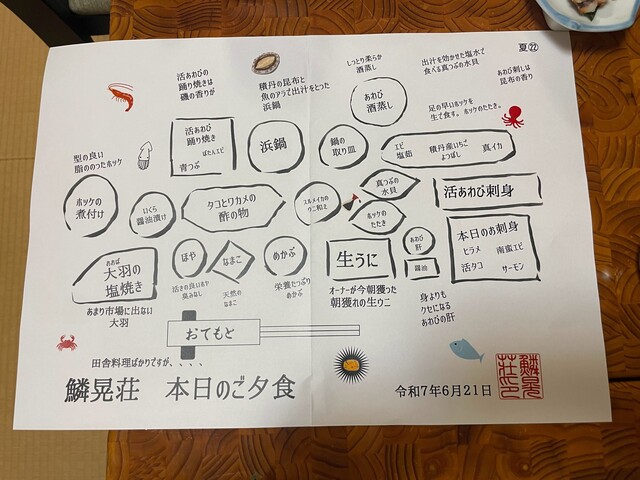 夏㉒
活あわびの
踊り焼きは
磯の香りが
積丹の昆布と
魚のアラで出汁をとった
浜鍋
しっとり柔らか
酒蒸し
出汁を効かせた塩水で
食べる真つぶの水貝
あわび刺しは
昆布の香り
あわび
酒蒸し
足の早いホッケを
生で食す。ホッケのたたき。
型の良い
脂ののったホッケ
活あわび
踊り焼き
ぼたんエビ
青つぶ
浜鍋
鍋の
取り皿
エビ
塩茹
積丹産いちご
よつぼし
真イカ
ホッケの
煮付け
いくら
醤油漬け
タコとワカメの
酢の物
スルメイカの
ウニ和え
真つぶの
水貝
ホッケの
たたき
活あわび刺身
おおば
大羽の
塩焼き
ほや
なまこ
めかぶ
生うに
あわび
肝
醤油
本日のお刺身
ヒラメ
南蛮エビ
活タコ
サーモン
あまり市場に出ない
大羽
活きの良いほや
臭みなし
天然の
なまこ
栄養たっぷり
めかぶ
オーナーが今朝獲った
朝獲れの生ウニ
身よりも
クセになる
あわびの肝
おてもと
田舎料理ばかりですが、、、、
鱗晃荘 本日のご夕食
令和7年6月21日